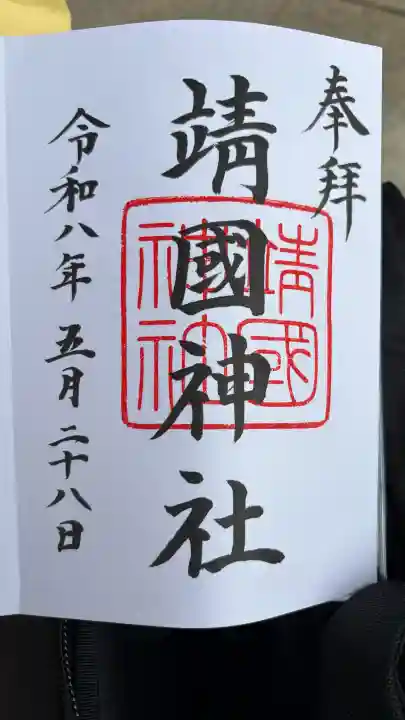 奉拝
靖國神社
靖國
神社
令和八年 五月二十八日